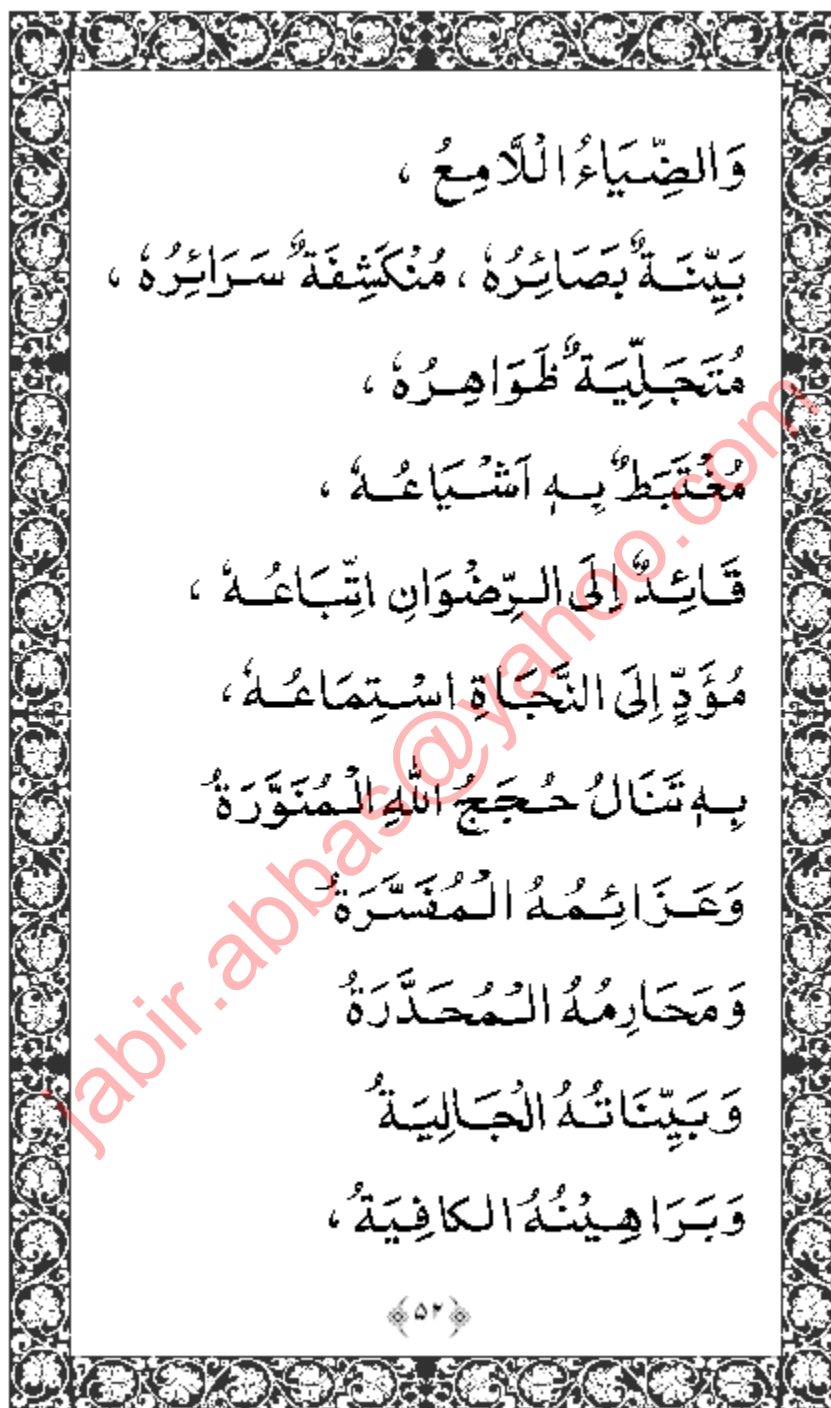 وَالضِّيَاءُ الْلَّامِعُ ،
بَيِّنَةٌ بَصَائِرُهٗ ، مُنْكَشِفَةٌ سَرَائِرُهٗ ،
مُتَجَلِّيَةٌ ظَوَاهِرُهٗ ،
مُغْتَبَطٌ بِهٖ اَشْيَاعُهٗ ،
قَائِدٌ اِلَى الرِّضْوَانِ اتِّبَاعُهٗ ،
مُؤَدٍّ اِلَى النَّجَاةِ اسْتِمَاعُهٗ ،
بِهٖ تَنَالُ حُجَجُ اللّٰهِ الْمُنَوَّرَةُ
وَعَزَائِمُهُ الْمُفَسَّرَةُ
وَمَحَارِمُهُ الْمُحَذَّرَةُ
وَبَيِّنَاتُهُ الْجَالِيَةُ
وَبَرَاهِيْنُهُ الكافِيَةُ ،
﴿۵۲﴾
jabir.abbas@yahoo.com